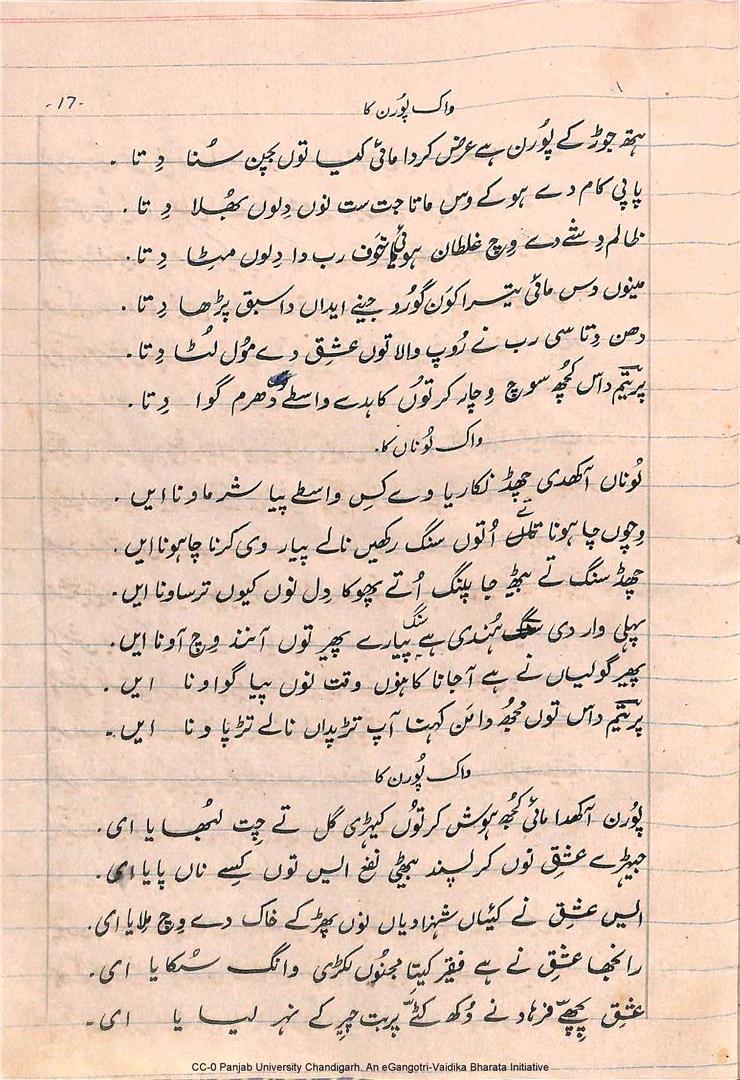 -17-
واک پُورن کا
ہتھ جوڑ کے پُورن ہے عرض کردا مائی کہیا توں بچن سُنا دِتا ۔
پاپی کام دے ہو کے وس ماتا جت ست نوں دِلوں بھُلا دِتا ۔
ظالم وِشے دے وِچ غلطان ہوئی خوف رب دا دِلوں مِٹا دِتا ۔
مینوں دس مائی تیرا کون گورُو جینے ایداں دا سبق پڑھا دِتا ۔
دھن دِتا سی رب نے رُوپ والا توں عشق دے مُول لُٹا دِتا ۔
پریتم داس کُچھ سوچ وِچار کر توُں کاہدے واسطے دھرم گوا دِتا ۔
واک لُوناں کا۔
لُوناں آکھدی چھڈ نکاریا وے کِس واسطے پیا شرماونا ایں ۔
وِچوں چاہونا تے اُتوں سنگ رکھیں نالے پیار وی کرنا چاہونا ایں ۔
چھڈ سنگ تے بیٹھ جا پلنگ اُتے پھوکا دِل نوں کیوں ترساونا ایں ۔
پہلی وار دی سنگ ہُندی ہے پیارے پھیر توں آنند وِچ آونا ایں ۔
پھیر گولیاں نے ہے آجانا کاہنوں وقت نوں پیا گواونا ایں ۔
پریتم داس توں مُجھ دامن کہنا آپ تڑپداں نالے تڑپاونا ایں ۔
واک پُورن کا
پُورن آکھدا مائی کُچھ ہوش کر توُں کیہڑی گل تے چِت لبھُایا ای ۔
جیہڑے عشق نوں کر پسند بیٹھی نفع ایس توں کسے ناں پایا ای ۔
ایس عشق نے کئیاں شہزادیاں نوں پھڑ کے خاک دے وِچ مِلایا ای ۔
رانجھا عشق نے ہے فقیر کیتا مجنُوں لکڑی وانگ سُکایا ای ۔
عشق پِچھے فرہاد نے دُکھ کٹے پربت چیر کے نہر لیایا ای ۔
CC-0 Panjab University Chandigarh. An eGangotri-Vaidika Bharata Initiative